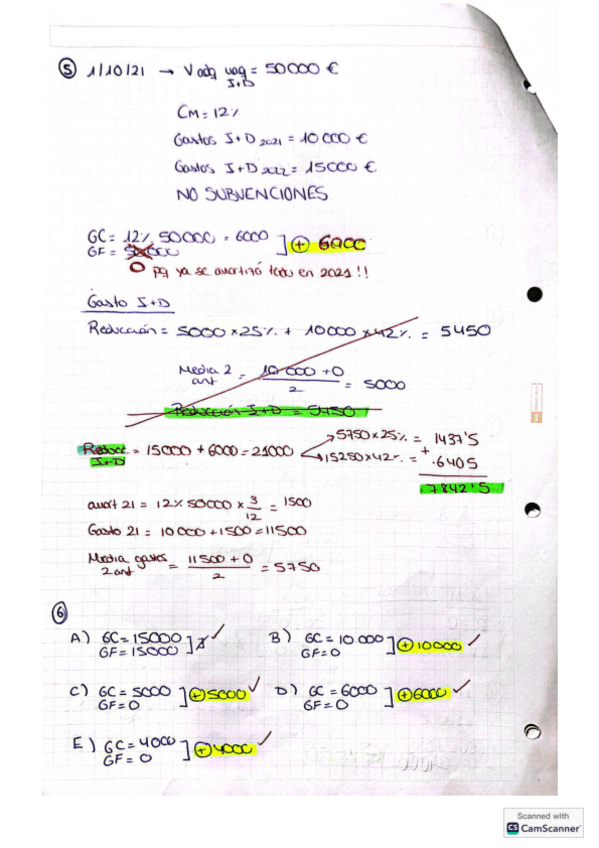 ⑤ 1/10/21 → Vadq maq = 50000 €
I+D
CM = 12%
Gastos I+D 2021 = 10000 €
Gastos I+D 2022 = 15000 €
NO SUBVENCIONES
GC = 12% 50000 = 6000
GF = 50000 ] + 6000
0 pq ya se amortizó todo en 2021!!
Gasto I+D
Reducción = 5000 x 25% + 10000 x 42% = 5450
Media 2 ant = 10 000 + 0 / 2 = 5000
Reducción I+D = 5450
Reducc I+D = 15000 + 6000 = 21000 → 5750 x 25% = 1437'5
→ 15250 x 42% = + 6405
7842'5
amort 21 = 12% 50000 x 3/12 = 1500
Gasto 21 = 10000 + 1500 = 11500
Media gastos 2 ant = 11500 + 0 / 2 = 5750
⑥
A) GC = 15000
GF = 15000 ] ✓
B) GC = 10 000
GF = 0 ] + 10000 ✓
C) GC = 5000
GF = 0 ] + 5000 ✓
D) GC = 6000
GF = 0 ] + 6000 ✓
E) GC = 4000
GF = 0 ] + 4000 ✓
Scanned with
CS CamScanner